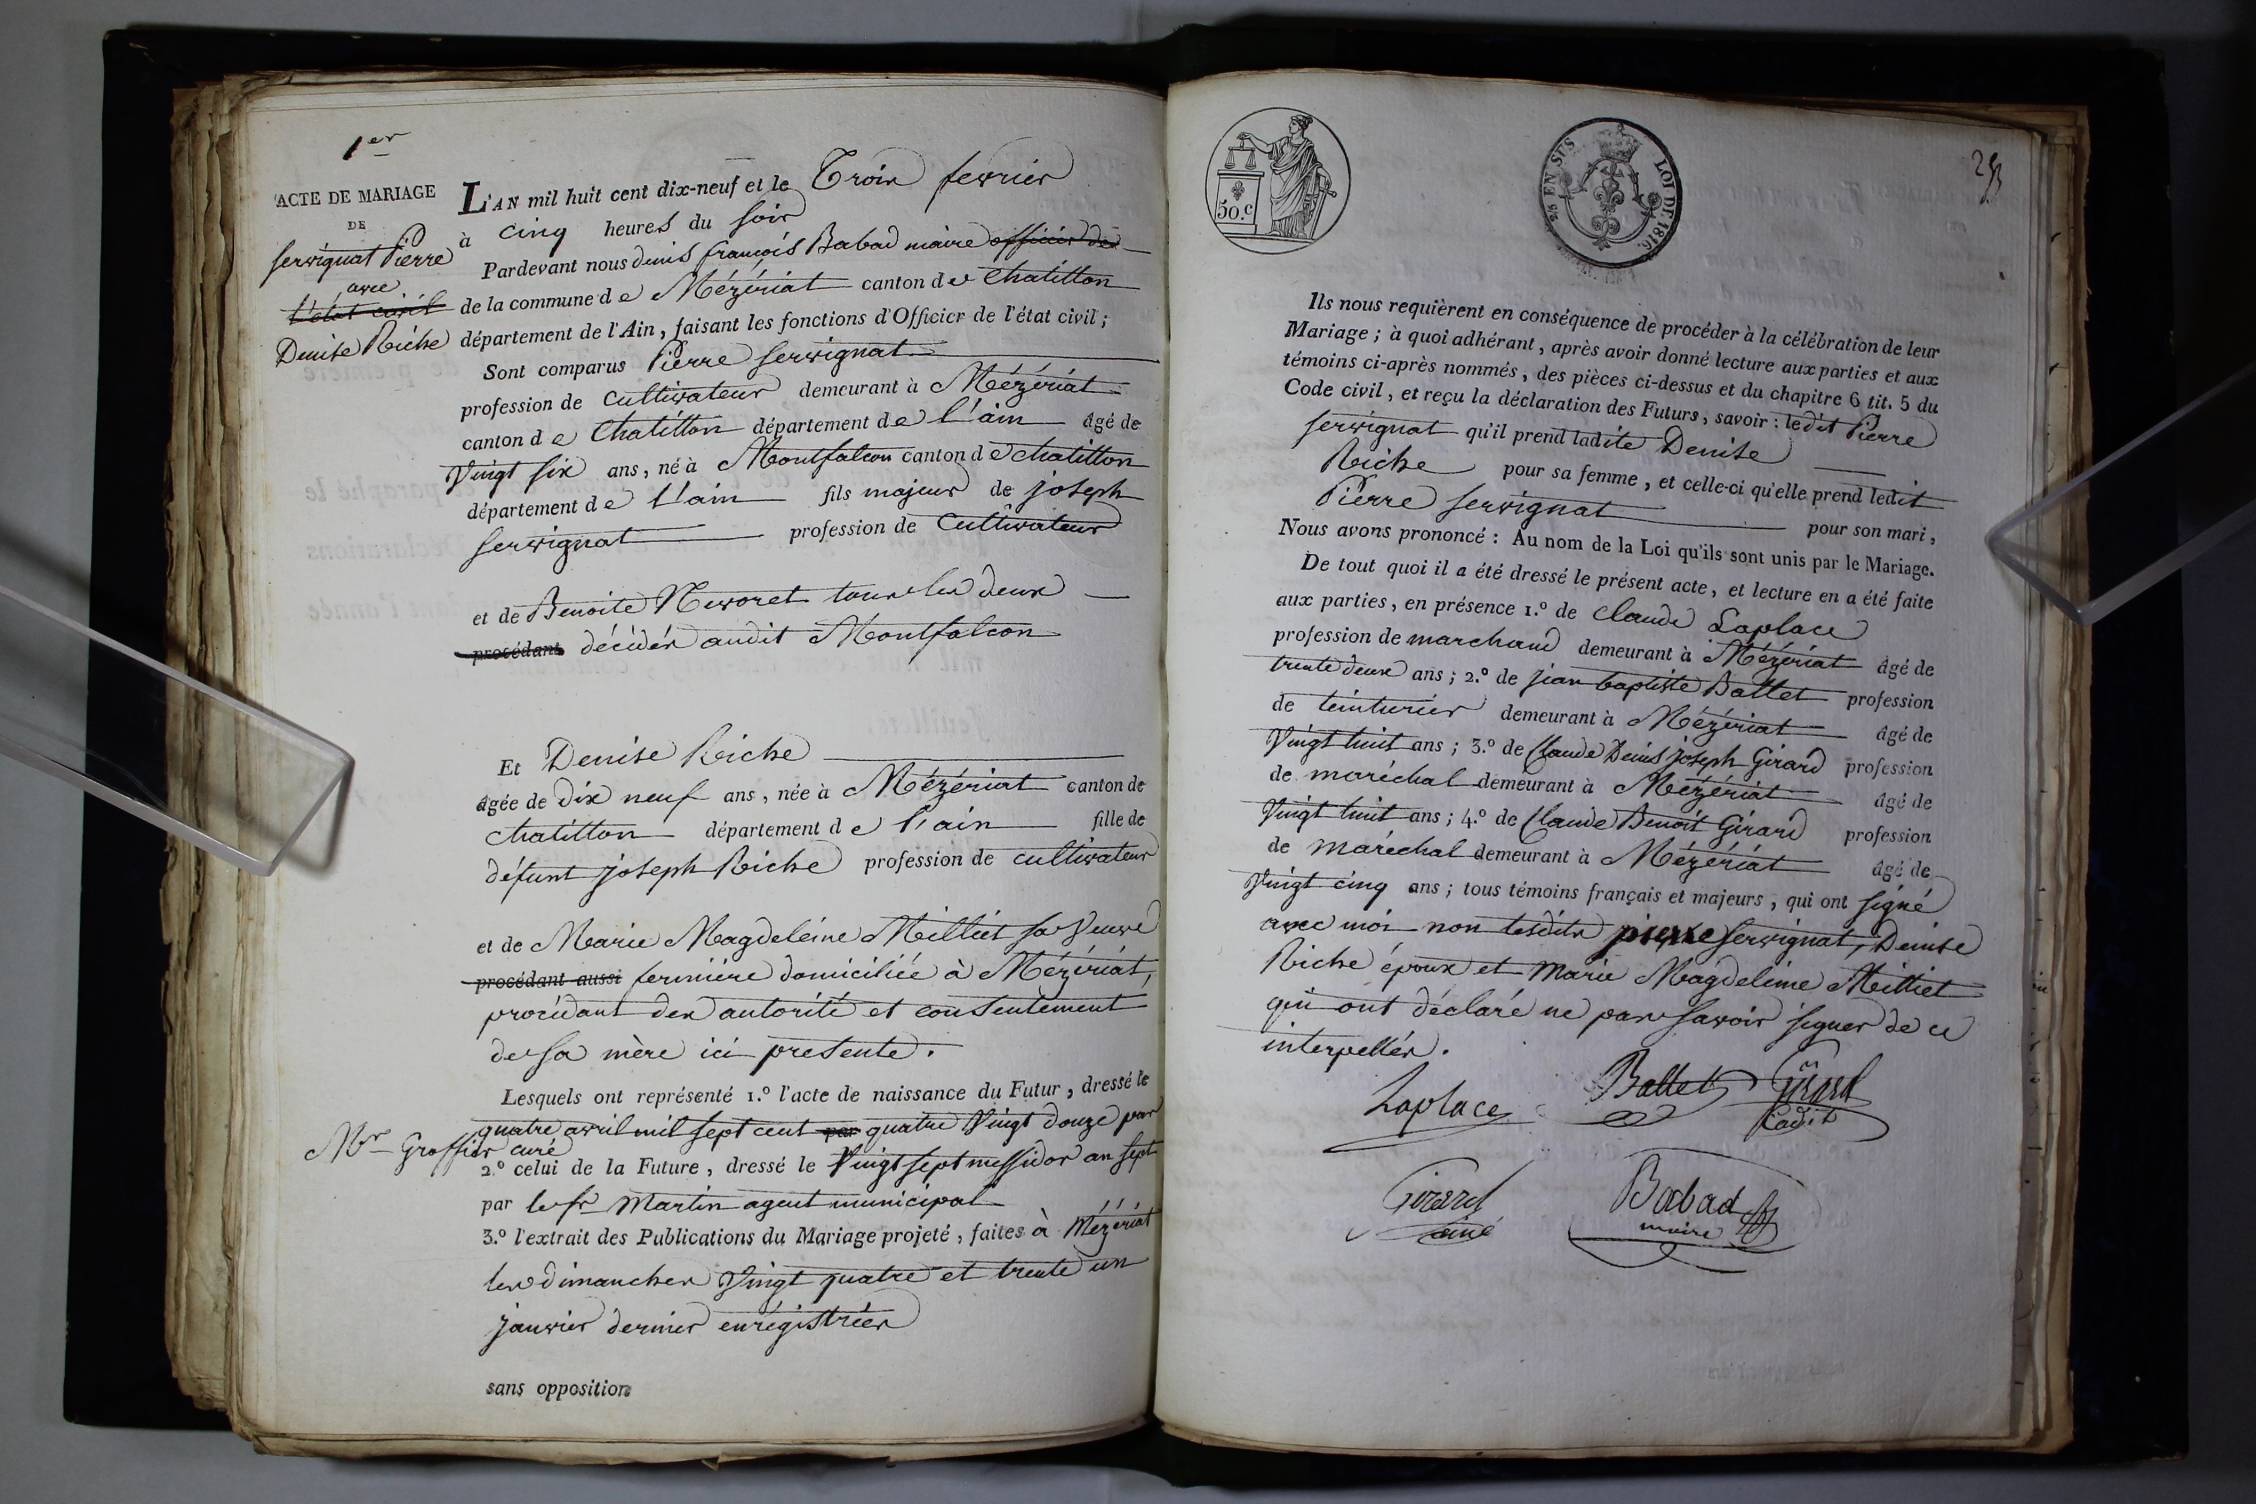 1er
ACTE DE MARIAGE
DE
servignat Pierre
avec
l'état civil
Denise Riche
L'AN mil huit cent dix-neuf et le Trois fevrier
à cinq heures du soir
Pardevant nous denis françois Babad maire officier de
de la commune de Mézériat canton de Chatillon
département de l'Ain, faisant les fonctions d'Officier de l'état civil;
Sont comparus Pierre servignat
profession de cultivateur demeurant à Mézériat
canton de Chatillon département de l'ain âgé de
Vingt six ans, né à Montfalcon canton de chatillon
département de l'ain fils majeur de joseph
servignat profession de Cultivateur
et de Benoite Nevoret tous les deux
procédant décédés audit Montfalcon
Et Denise Riche
âgée de dix neuf ans, née à Mézériat canton de
chatillon département de l'ain fille de
défunt joseph Riche profession de cultivateur
et de Marie Magdeleine Milliet sa Veuve
procédant aussi fermière domiciliée à Mézériat,
procédant des autorité et consentement
de sa mère ici presente.
Lesquels ont représenté 1.º l'acte de naissance du Futur, dressé le
quatre avril mil sept cent par quatre Vingt douze par
Mr Groffier curé
2.º celui de la Future, dressé le Vingt sept messidor an sept
par le sr Martin agent municipal
3.º l'extrait des Publications du Mariage projeté, faites à Mézériat
les dimanches Vingt quatre et trente un
janvier dernier enrégistrées
sans opposition
50.c
25 EN SUS
LOI DE 1816
Ils nous requièrent en conséquence de procéder à la célébration de leur
Mariage; à quoi adhérant, après avoir donné lecture aux parties et aux
témoins ci-après nommés, des pièces ci-dessus et du chapitre 6 tit. 5 du
Code civil, et reçu la déclaration des Futurs, savoir: ledit Pierre
servignat qu'il prend ladite Denise
Riche pour sa femme, et celle-ci qu'elle prend ledit
Pierre servignat pour son mari,
Nous avons prononcé: Au nom de la Loi qu'ils sont unis par le Mariage.
De tout quoi il a été dressé le présent acte, et lecture en a été faite
aux parties, en présence 1.º de Claude Laplace
profession de marchand demeurant à Mézériat âgé de
trente deux ans; 2.º de jean baptiste Ballet profession
de teinturier demeurant à Mézériat âgé de
Vingt huit ans; 3.º de Claude Denis joseph Girard profession
de maréchal demeurant à Mézériat âgé de
Vingt huit ans; 4.º de Claude Benoit Girard profession
de maréchal demeurant à Mézériat âgé de
Vingt cinq ans; tous témoins français et majeurs, qui ont signé
avec moi non lesdits pierre servignat, Denise
Riche époux et Marie Magdeleine Milliet
qui ont déclaré ne pas savoir signer de ce
interpellés.
Laplace Ballet Girard
Cadit
Girard Babad
ainé maire